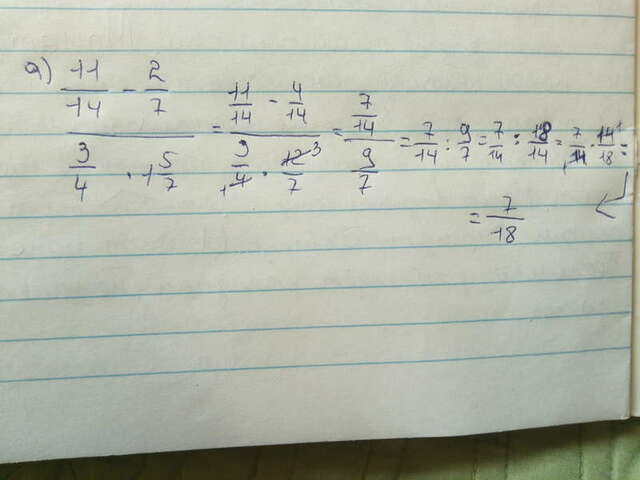 a) (11/14 - 2/7)/(3/4 · 1 5/7) = (11/14 - 4/14)/(3/4 · 12/7) = (7/14)/(9/7) = 7/14 : 9/7 = 7/14 : 18/14 = 7/14 · 14/18 =
= 7/18